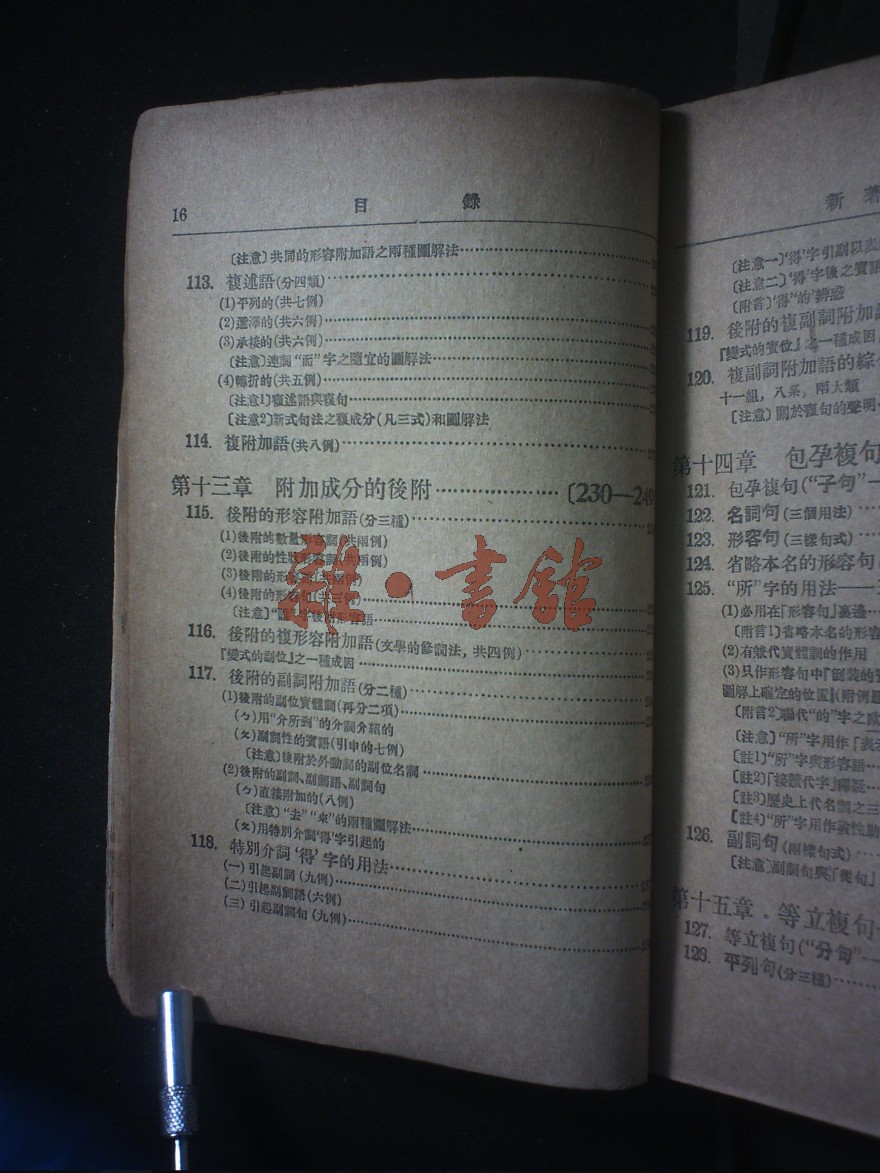 16 目 錄
〔注意〕共同的形容附加語之兩種圖解法
113. 複述語(分四類)
(1)平列的(共七例)
(2)選擇的(共六例)
(3)承接的(共六例)
〔注意〕連詞“而”字之隨宜的圖解法
(4)轉折的(共五例)
〔注意1〕複述語與複句
〔注意2〕新式句法之複成分(凡三式)和圖解法
114. 複附加語(共八例)
第十三章 附加成分的後附 〔230—249
115. 後附的形容附加語(分三種)
(1)後附的數量形容詞(共兩例)
(2)後附的性狀形容詞(共兩例)
(3)後附的形容語(共兩例)
(4)後附的形容句(共三例)
〔注意〕“ 字後附形容語
116. 後附的複形容附加語(文學的修詞法，共四例)
『變式的副位』之一種成因
117. 後附的副詞附加語(分二種)
(1)後附的副位實體詞(再分二項)
(ㄅ)用“介所到”的介詞介紹的
(ㄆ)副詞性的賓語(引申的七例)
〔注意〕後附於外動詞的副位名詞
(2)後附的副詞、副詞語、副詞句
(ㄅ)直接附加的(八例)
〔注意〕“去”“來”的兩種圖解法
(ㄆ)用特別介詞‘得’字引起的
118. 特別介詞‘得’字的用法
(一)引起副詞(九例)
(二)引起副詞語(六例)
(三)引起副詞句(九例)
新 著
〔注意一〕‘得’字引副以表
〔注意二〕‘得’字後之賓語
〔附言〕‘得’‘的’辨惑
119. 後附的複副詞附加語
『變式的賓位』之一種成因
120. 複副詞附加語的綜
十一組，八系，兩大類
〔注意〕關於複句的聲明
第十四章 包孕複句
121. 包孕複句(“子句”—
122. 名詞句(三個用法)
123. 形容句(三樣句式)
124. 省略本名的形容句
125. “所”字的用法——
(1)必用在『形容句』裏邊
〔附言1〕省略本名的形容
(2)有兼代實體詞的作用
(3)只作形容句中『倒裝的賓
圖解上確定的位置(附例題
〔附言2〕聯代“的”字之
〔注意〕“所”字用作『表
〔註1〕“所”字與形容語
〔註2〕『接讀代字』釋疑
〔註3〕歷史上代名詞之三
〔註4〕“所”字用作被性助
126. 副詞句(兩樣句式)
〔注意〕副詞句與『從句』
第十五章 等立複句
127. 等立複句(“分句”—
128. 平列句(分三種)
雜·書館